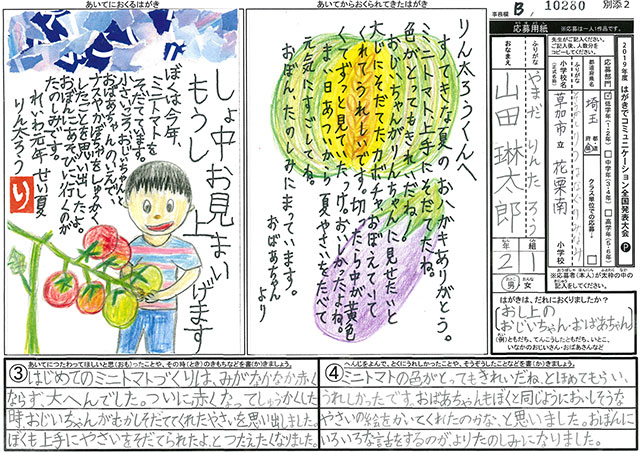 あいてにおくるはがき
しょ中お見まい
もうし上げます
ぼくは今年、
ミニトマトを
そだてています。
小さいころ、おじいちゃんと
おばあちゃんのいえで、
ナスやかぼちゃをしゅうかく
したことを思い出したよ。
おぼんにあそびに行くのが
たのしみです。
れいわ元年 せい夏
りん太ろう
り
あいてからおくられてきたはがき
りん太ろうくんへ
すてきな夏のおハガキありがとう。
ミニトマト上手にそだてたね。
色がとってもきれいだね。
おじいちゃんがりんちゃんに見せたいと
大じにそだてたカボチャおぼえていて
くれてうれしいです。切ったら中が黄色
くてずっと見ていたっけ。おいしかったよね。
まい日あついから夏やさいをたべて
元気にすごしてね。
おぼんたのしみにまっています。
おばあちゃん
より
事務局 B, 10280 別添2
応募用紙
※応募は一人1作品です。
先生がご記入ください。
ご記入後、人数分を
コピーしてください。
2019年度 はがきでコミュニケーション全国発表大会 P
応募部門 低学年(1・2年) 中学年(3・4年) 高学年(5・6年)
都道府県名 埼玉
クラス単位での応募
小学校名
草加市立 花栗南 小学校
ふりがな やまだ りんたろう
おなまえ 山田 琳太郎
2年 1組
男 女
※応募者(本人)が太枠の中の
記入をしてください。
はがきは、だれにおくりましたか?
おし上の
おじいちゃん・おばあちゃん
(例)ともだち、てんこうしたともだち、いとこ、
いなかのおじいさん・おばあさんなど
あいてにつたわってほしいと思(おも)ったことや、その時(とき)のきもちなどを書(か)きましょう。
③はじめてのミニトマトづくりは、みがなかなか赤く
ならず大へんでした。ついに赤くなってしゅうかくした
時、おじいちゃんがむかしそだててくれたやさいを思い出しました。
ぼくも上手にやさいをそだてられたよ、とつたえたくなりました。
へんじをよんで、とくにうれしかったことや、そうぞうしたことなどを書(か)きましょう。
④ミニトマトの色がとってもきれいだね、とほめてもらい、
うれしかったです。おばあちゃんもぼくと同じようにおいしそうな
やさいの絵をかいてくれたのかな、と思いました。おぼんに
いろいろな話をするのが、よりたのしみになりました。